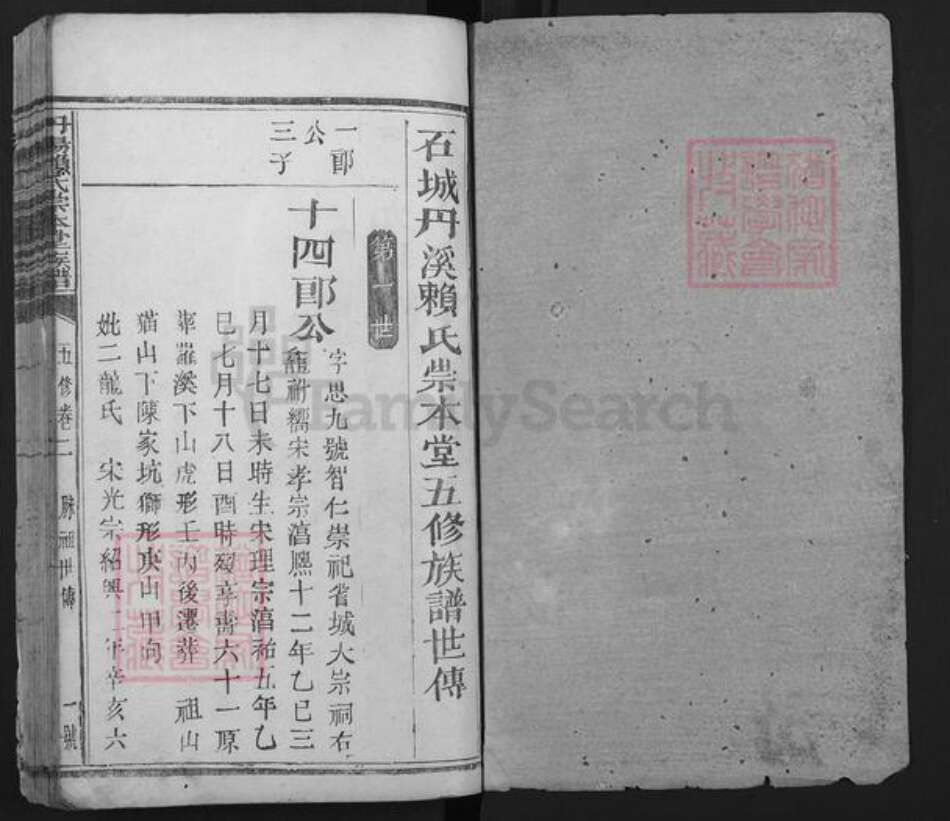 石城丹溪賴氏崇本堂五修族譜世傳
第一世
一郎
公
三子
十四郎公
字思九號智仁崇祀省城大宗祠右
龕祔繻宋孝宗淳熙十二年乙巳三
月十七日未時生宋理宗淳祐五年乙
巳七月十八日酉時歿享壽六十一原
葬羅溪下山虎形壬丙後遷葬 祖山
猫山下陳家坑獅形庚山甲向
妣二龍氏 宋光宗紹興二年辛亥六
丹陽賴氏崇本堂族譜
五修卷二
脉祖世傳
一號
FamilySearch